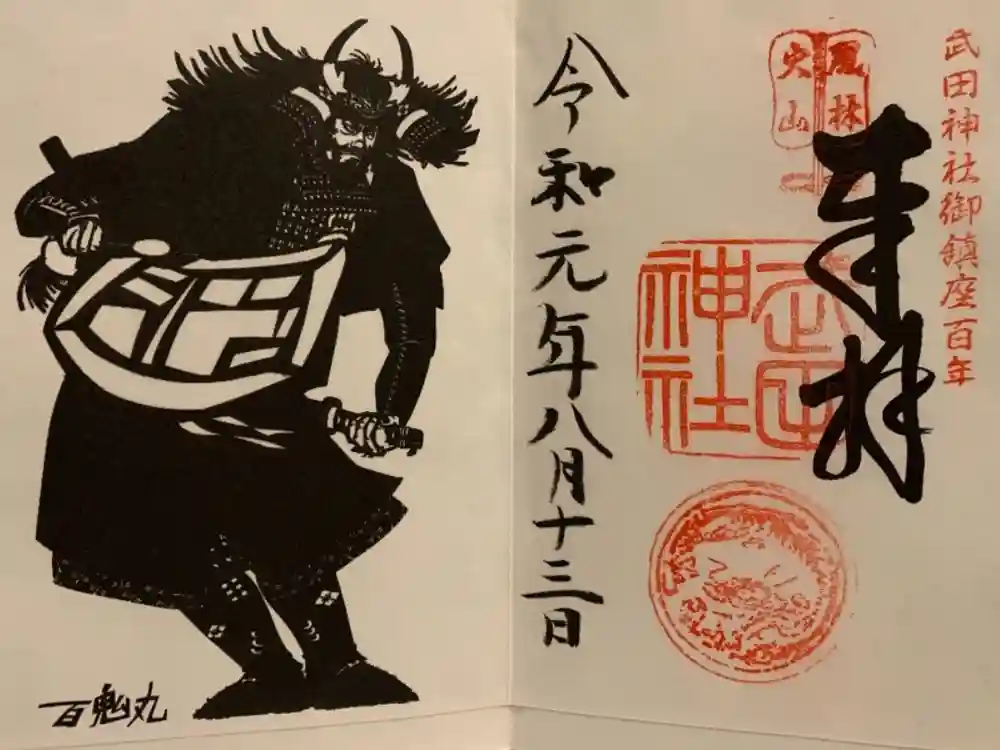 武田神社御鎮座百年
奉拝
風林
火山
武田
神社
令和元年八月十三日
百鬼丸